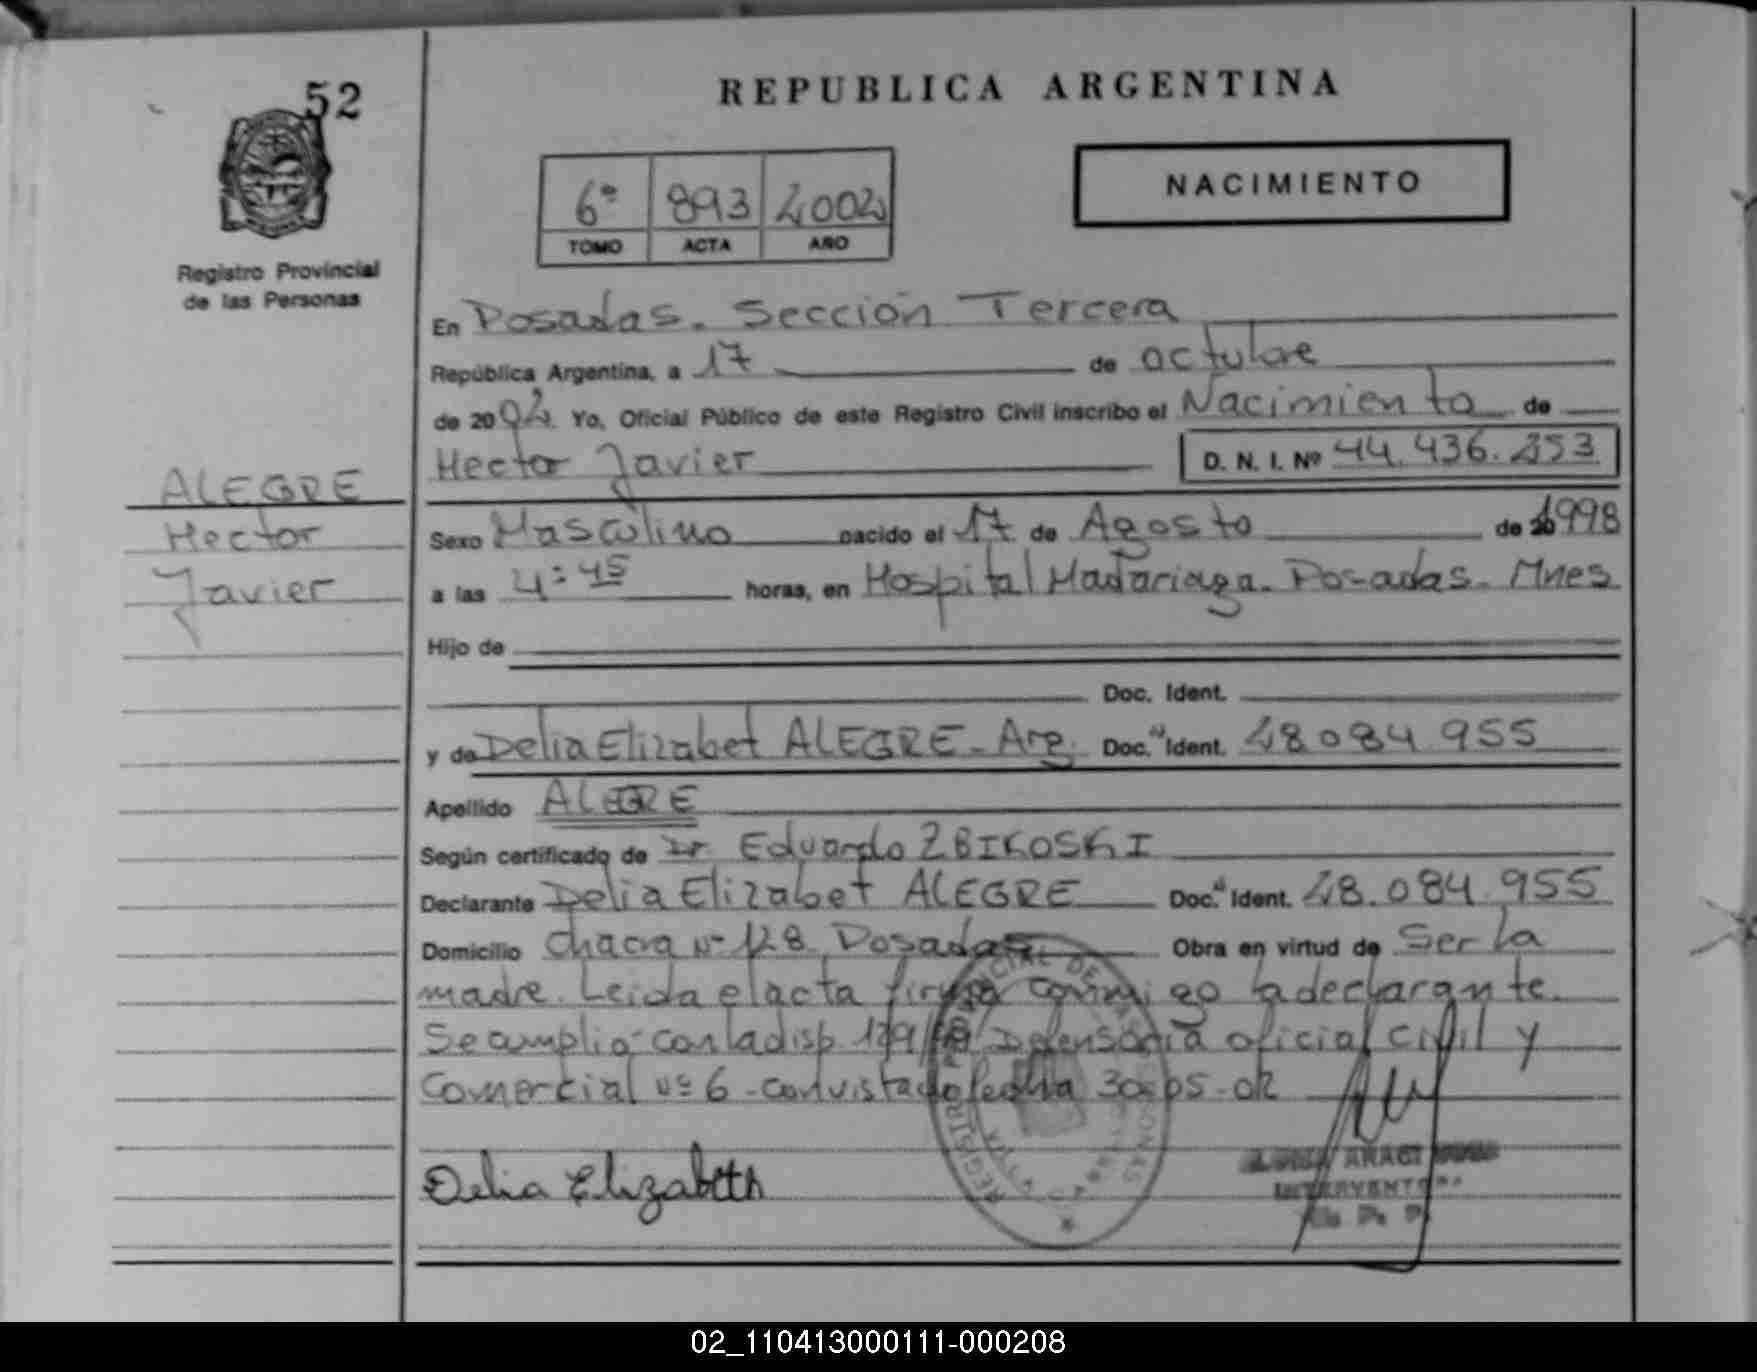 52
REPUBLICA ARGENTINA
6º 893 2002
TOMO ACTA AÑO
NACIMIENTO
Registro Provincial
de las Personas
En Posadas. Sección Tercera
República Argentina, a 17 de octubre
de 2002. Yo, Oficial Público de este Registro Civil inscribo el Nacimiento de
Hector Javier D. N. I. Nº 44.436.253
ALEGRE
Hector
Javier
Sexo Masculino nacido el 17 de Agosto de 1998
a las 4:45 horas, en Hospital Madariaga. Posadas. Mnes
Hijo de
Doc. Ident.
y de Delia Elizabet ALEGRE - Arg. Doc. Ident. 28 084 955
Apellido ALEGRE
Según certificado de Dr. Eduardo ZBIKOSKI
Declarante Delia Elizabet ALEGRE Doc. Ident. 28.084.955
Domicilio Chacra Nº 128 Posadas Obra en virtud de Ser la
madre. Leida el acta firma conmigo la declarante.
Se cumplio con la disp. Defensoria oficial Civil y
Comercial Nº 6 - con vista de fecha 30-05-02
Delia Elizabeth
REGISTRO PROVINCIAL DE LAS PERSONAS
INTERVENTORA
R. P. P.
02_110413000111-000208